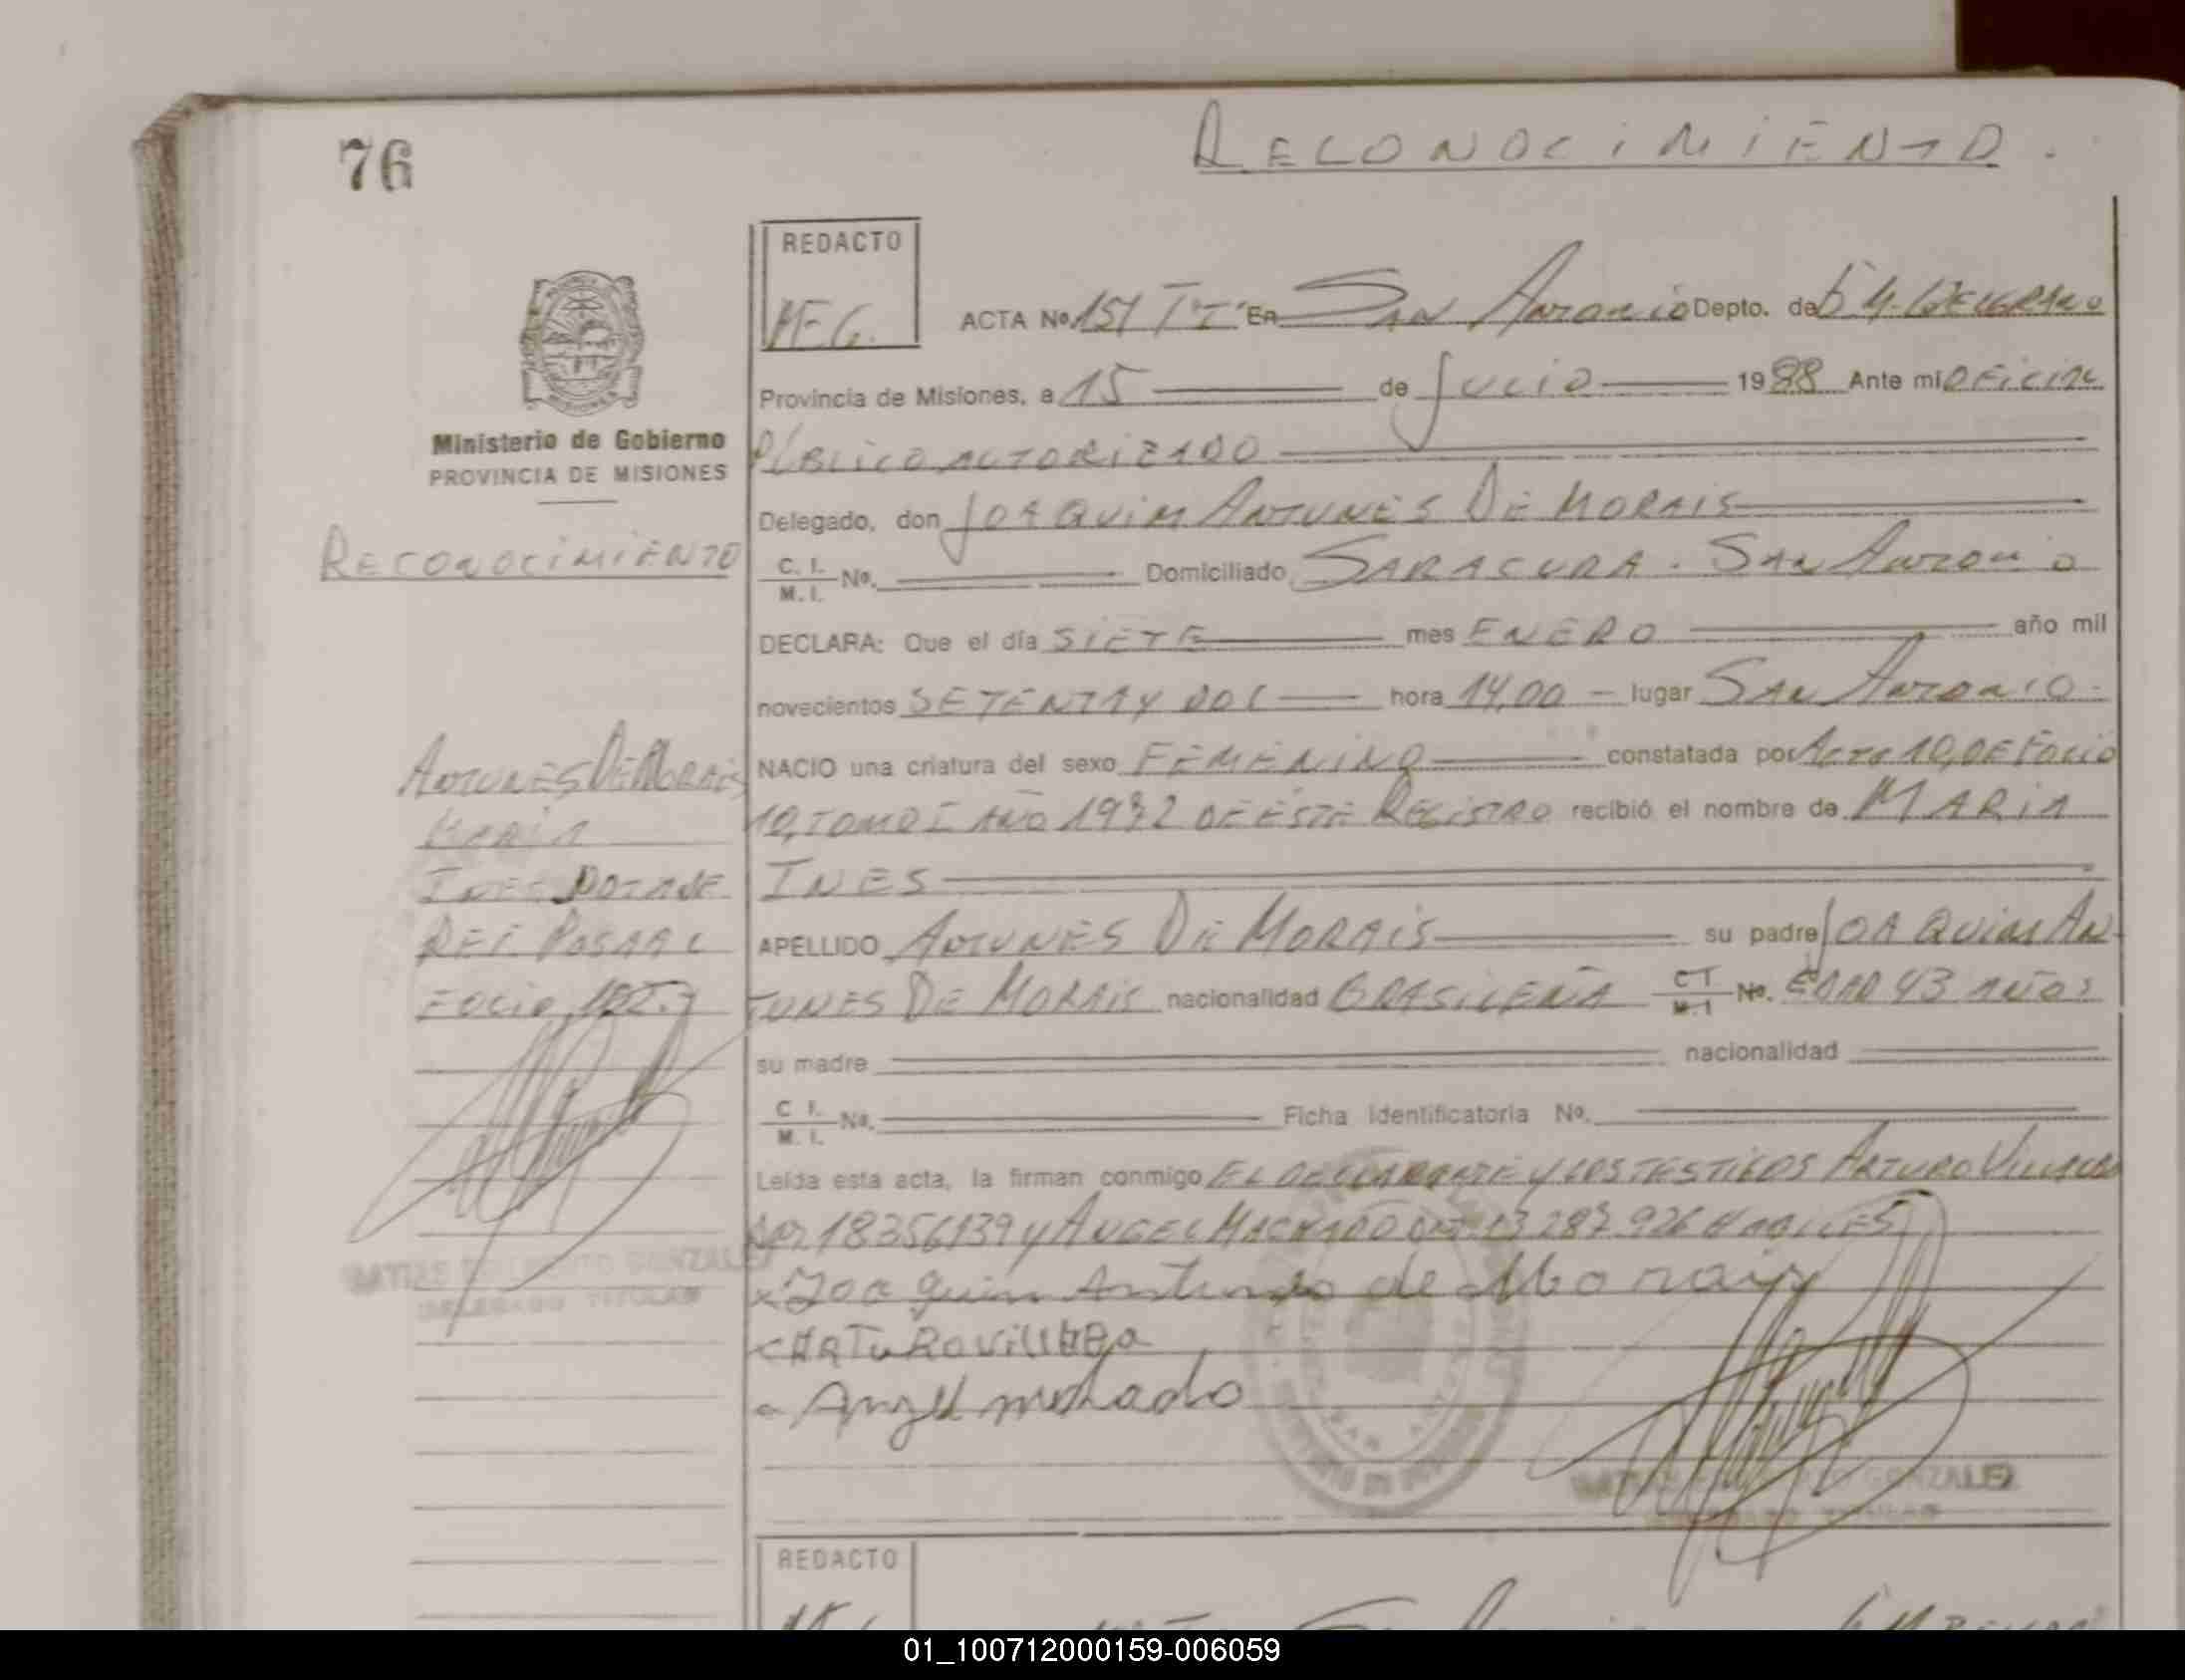 76
RECONOCIMIENTO.
REDACTO
ACTA No. 151 TºI' En SAN ANTONIO Depto. de G M. BELGRANO
Provincia de Misiones, a 15 de JULIO 1988 Ante mi OFICIAL
PUBLICO AUTORIZADO
Ministerio de Gobierno
PROVINCIA DE MISIONES
Delegado, don JOAQUIM ANTUNES DE MORAIS
RECONOCIMIENTO
C. I. M. I. No. Domiciliado SARACURA. SAN ANTONIO
DECLARA: Que el día SIETE mes ENERO año mil
novecientos SETENTA Y DOS hora 14,00 - lugar SAN ANTONIO-
NACIO una criatura del sexo FEMENINO constatada por ACTA 10, DE FOLIO
10, TOMO I AÑO 1972 DE ESTE REGISTRO recibió el nombre de MARIA
INES
APELLIDO ANTUNES DE MORAIS su padre JOAQUIM AN-
TUNES DE MORAIS nacionalidad BRASILEÑA CI M.I No. EDAD 43 AÑOS
su madre nacionalidad
C I. M. I. No. Ficha Identificatoria No.
Leída esta acta, la firman conmigo EL DECLARANTE Y LOS TESTIGOS ARTURO VILLALBA
18356139 y ANGEL MACHADO 13.287.926 HABILES
x Joaquim Antunes de Morais
ARTURO VILLALBA
Angel machado
ANTUNES DE MORAIS
MARIA
INES
FOLIO
GONZALEZ
DELEGADO TITULAR
GONZALEZ
TITULAR
REDACTO
01_100712000159-006059